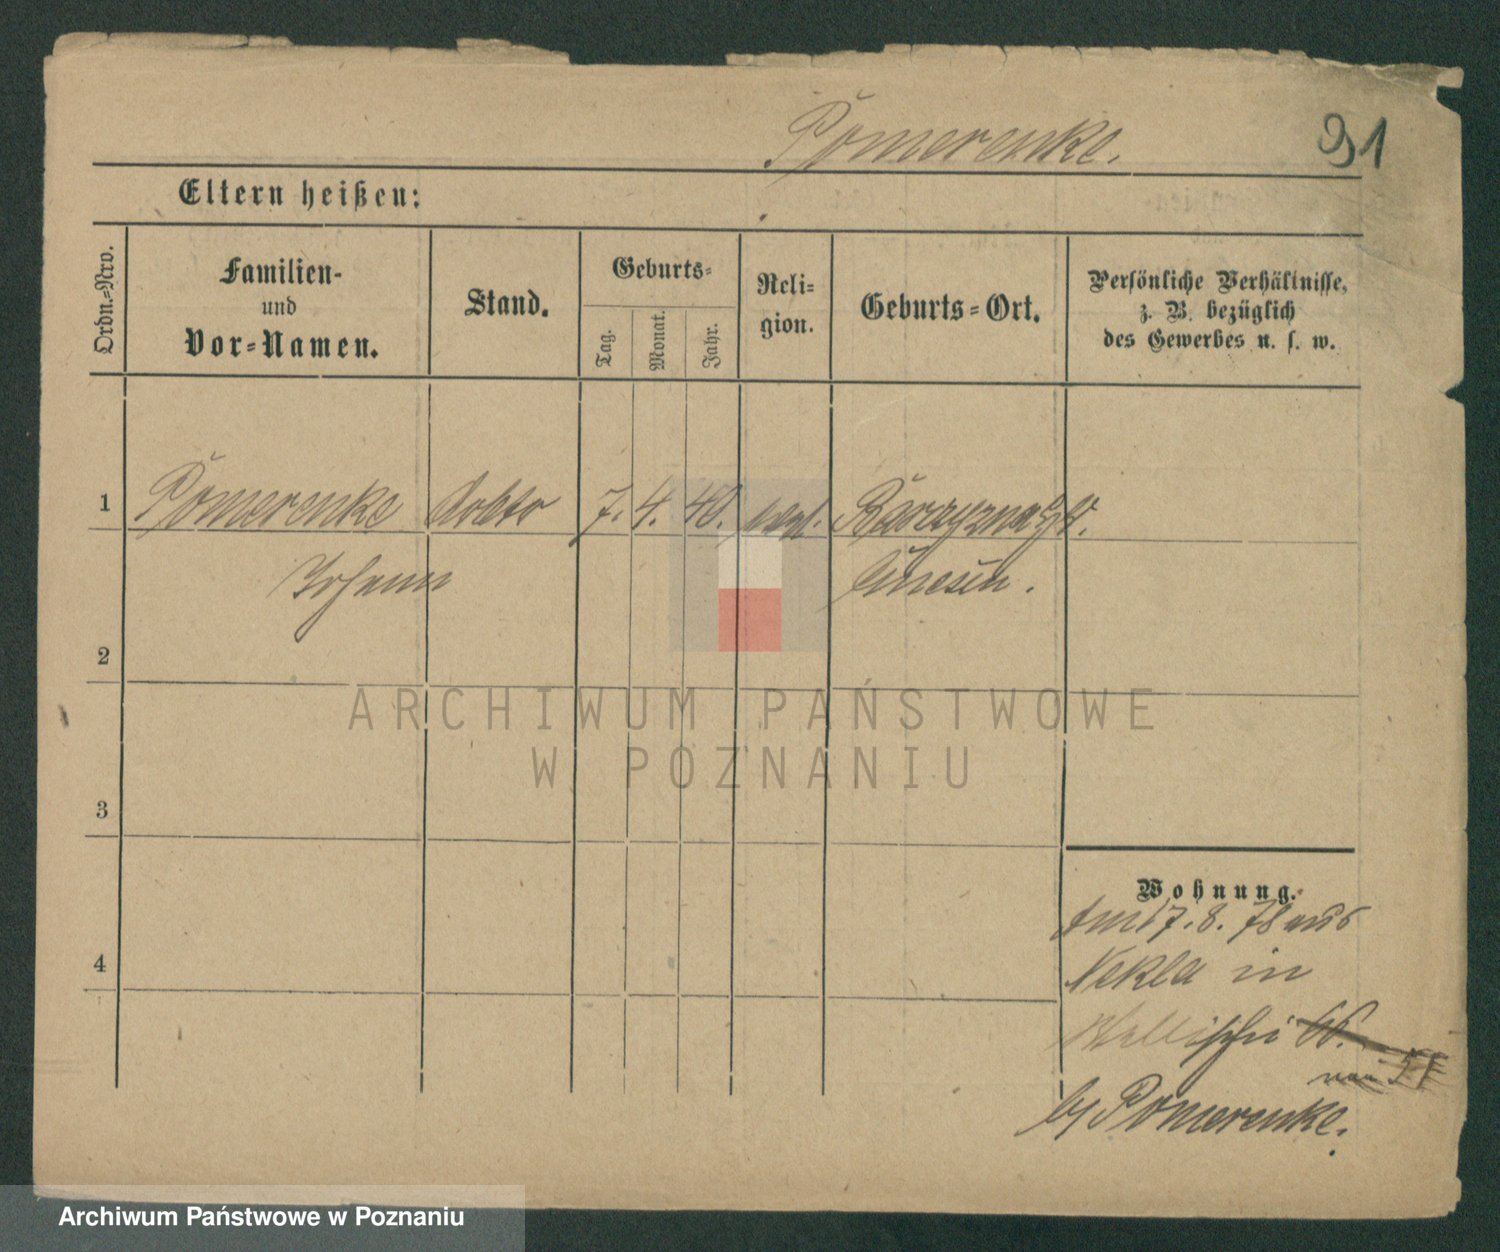 Pomerenke.
91
Eltern heißen:
Ordn.-Nro.
Familien-
und
Vor-Namen.
Stand.
Geburts-
Tag.
Monat.
Jahr.
Reli-
gion.
Geburts-Ort.
Persönliche Verhältnisse,
z. B. bezüglich
des Gewerbes u. s. w.
1 Pomerenke 7. 4. 40.
Johann Gnesen.
2
3
4
Wohnung.
Am 17. 8. 78 aus
Nekla in
Wallischei 66.
51
by Pomerenke.
ARCHIWUM PAŃSTWOWE
W POZNANIU
Archiwum Państwowe w Poznaniu